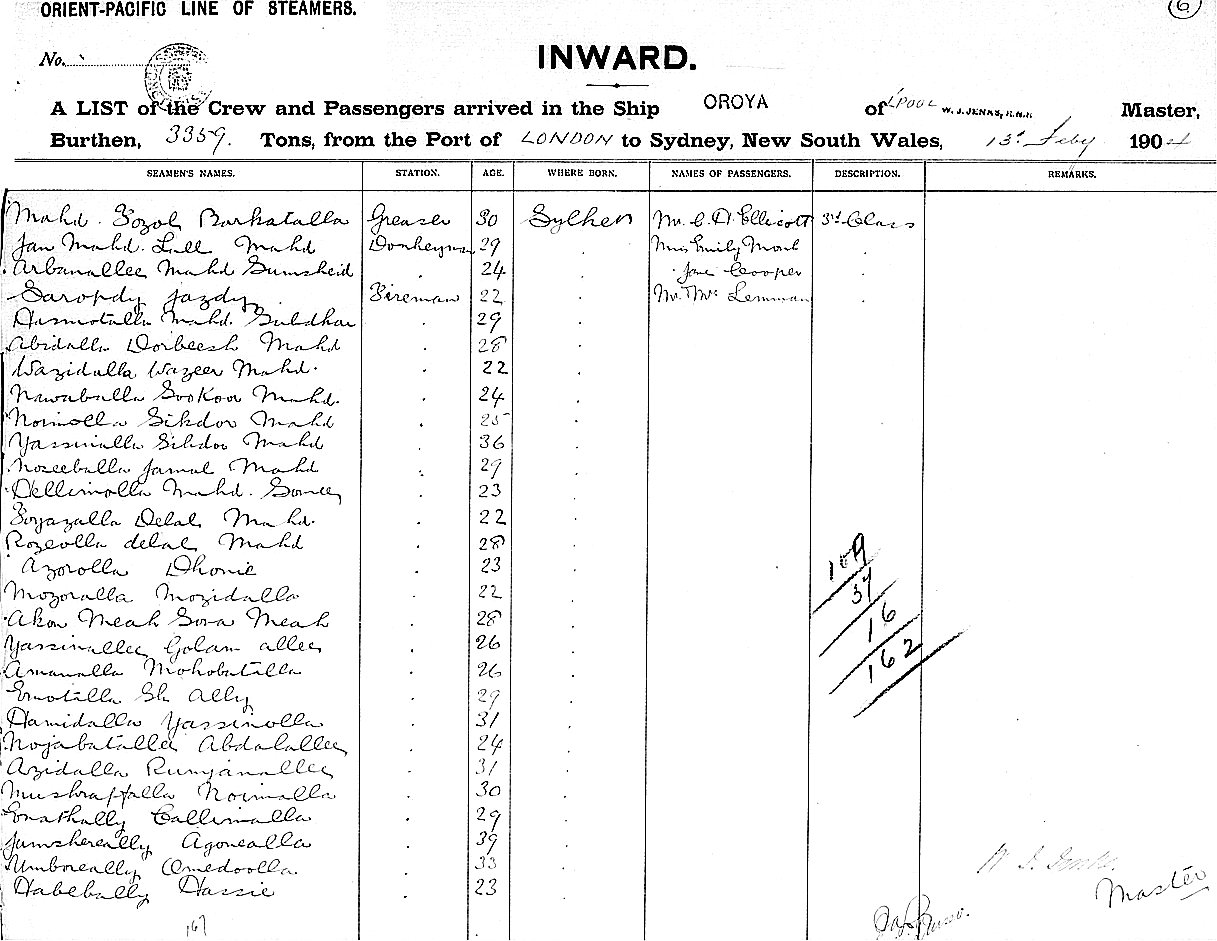 ORIENT-PACIFIC LINE OF STEAMERS. 6
No.
INWARD.
A LIST of the Crew and Passengers arrived in the Ship OROYA of L'POOL W. J. JENKS, R.N.R Master,
Burthen, 3359. Tons, from the Port of LONDON to Sydney, New South Wales, 13th Feby 1904
SEAMEN'S NAMES. STATION. AGE. WHERE BORN. NAMES OF PASSENGERS. DESCRIPTION. REMARKS.
Mahd. Fozol Barkatalla Greaser 30 Sylhet Mr. C. A. Ellicott 3rd Class
Jan Mahd. Lall Mahd Donkeyman 29 . Mrs Emily Monk .
Arbanallee Mahd Sumsheid . 24 . " Jane Cooper .
Saropdy Jazdy Fireman 22 . Mr. Mc Lennan .
Hasmotalla Mahd. Guldhar . 29 .
Abidalla Dorbeesh Mahd . 28 .
Wazidalla Wazeer Mahd. . 22 .
Nawaballa Sookoor Mahd. . 24 .
Noimolla Sikdor Mahd . 25 .
Yassinalla Sikdor Mahd . 36 .
Noseeballa Jamal Mahd . 29 .
Dellimolla Mahd. Sonee . 23 .
Foyazalla Delal Mahd. . 22 .
Rozeolla delal Mahd . 28 .
Azorolla Dhonie . 23 .
Mozoralla Mozidalla . 22 .
Akon Meah Sona Meah . 28 .
Yassinallee Golam allee . 26 .
Amanalla Mohobatalla . 26 .
Enotalla Sk Ally . 29 .
Hamidalla Yassinolla . 31 .
Nojabatallee Abdalallee . 24 .
Azidalla Rumjanallee . 31 .
Mushraffalla Noimalla . 30 .
Enathally Callimalla . 29 .
Jumshereally Agonealla . 39 .
Umboreally Omedoolla . 33 .
Habebally Hassie . 23 .
109
37
16
162
W. J. Jenks.
Master